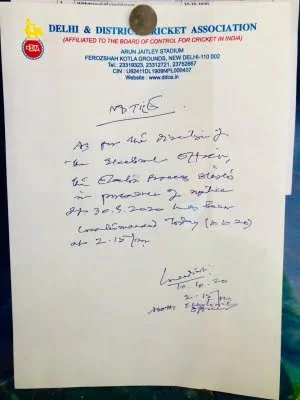 DELHI & DISTRICT CRICKET ASSOCIATION
(AFFILIATED TO THE BOARD OF CONTROL FOR CRICKET IN INDIA)
ARUN JAITLEY STADIUM
FEROZSHAH KOTLA GROUNDS, NEW DELHI-110 002
Tel.: 23319323, 23312721, 23752667
CIN : U92411DL1909NPL000407
Website : www.ddca.in
NOTICE
As per the direction of
the Electoral Officer,
the Election Process started
in pursuance of notice
dt 30.9.2020 has been
countermanded Today (10.10.20)
at 2.15 pm.
10.10.20
2.15 pm
Electoral
Officer